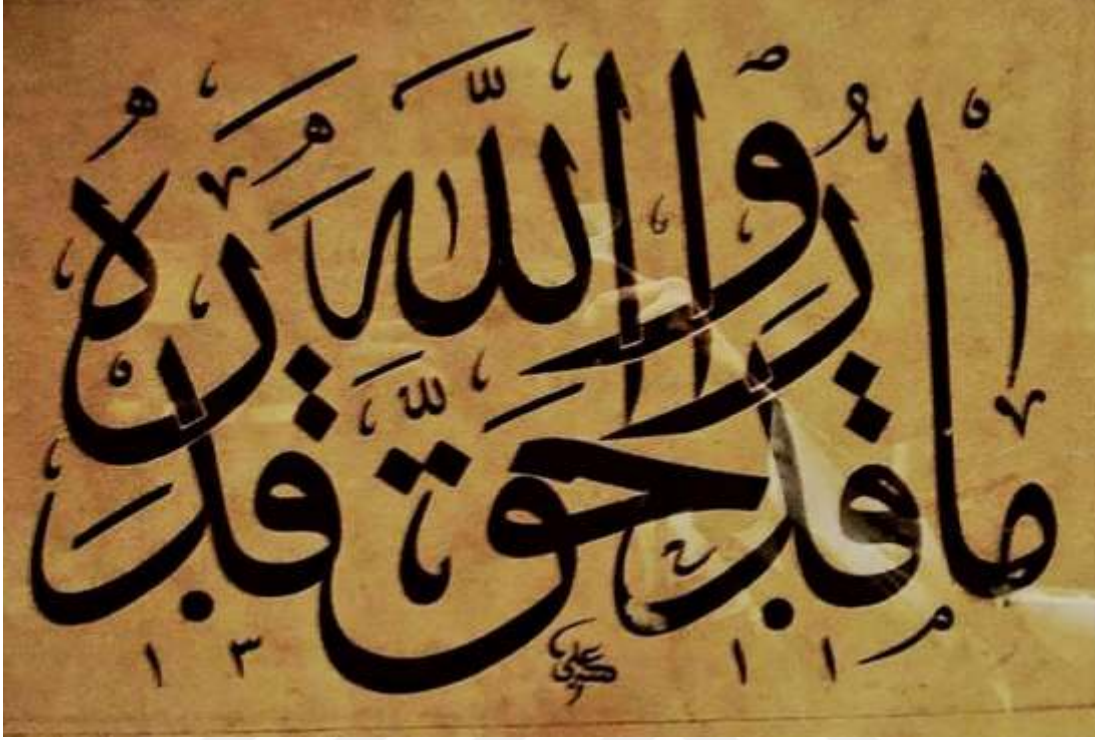 ما قدروا الله حق قدره
١٣ علي ١١